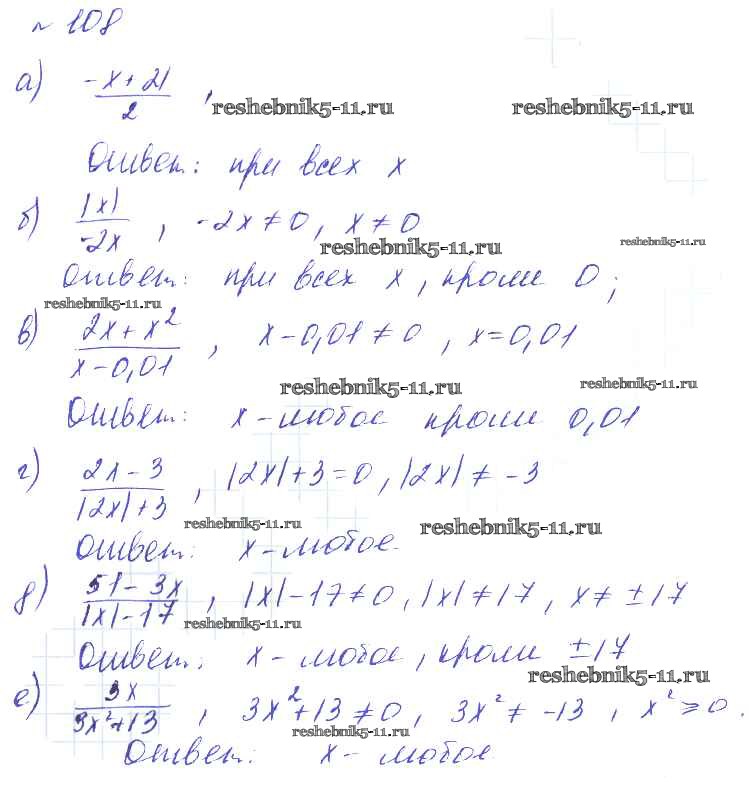 № 108
а) -x+21/2 ,
reshebnik5-11.ru reshebnik5-11.ru
Ответ: при всех x
б) |x|/-2x , -2x≠0, x≠0
reshebnik5-11.ru reshebnik5-11.ru
Ответ: при всех x, кроме 0;
reshebnik5-11.ru
в) 2x+x²/x-0,01 , x-0,01≠0 , x=0,01
reshebnik5-11.ru reshebnik5-11.ru
Ответ: x-любое кроме 0,01
г) 2x-3/|2x|+3 , |2x|+3=0, |2x|≠-3
reshebnik5-11.ru reshebnik5-11.ru
Ответ: x-любое.
д) 51-3x/|x|-17 , |x|-17≠0, |x|≠17, x≠±17
reshebnik5-11.ru
Ответ: x-любое, кроме ±17
reshebnik5-11.ru
е) 3x/3x²+13 , 3x²+13≠0, 3x²≠-13 , x²≥0.
reshebnik5-11.ru
Ответ: x-любое